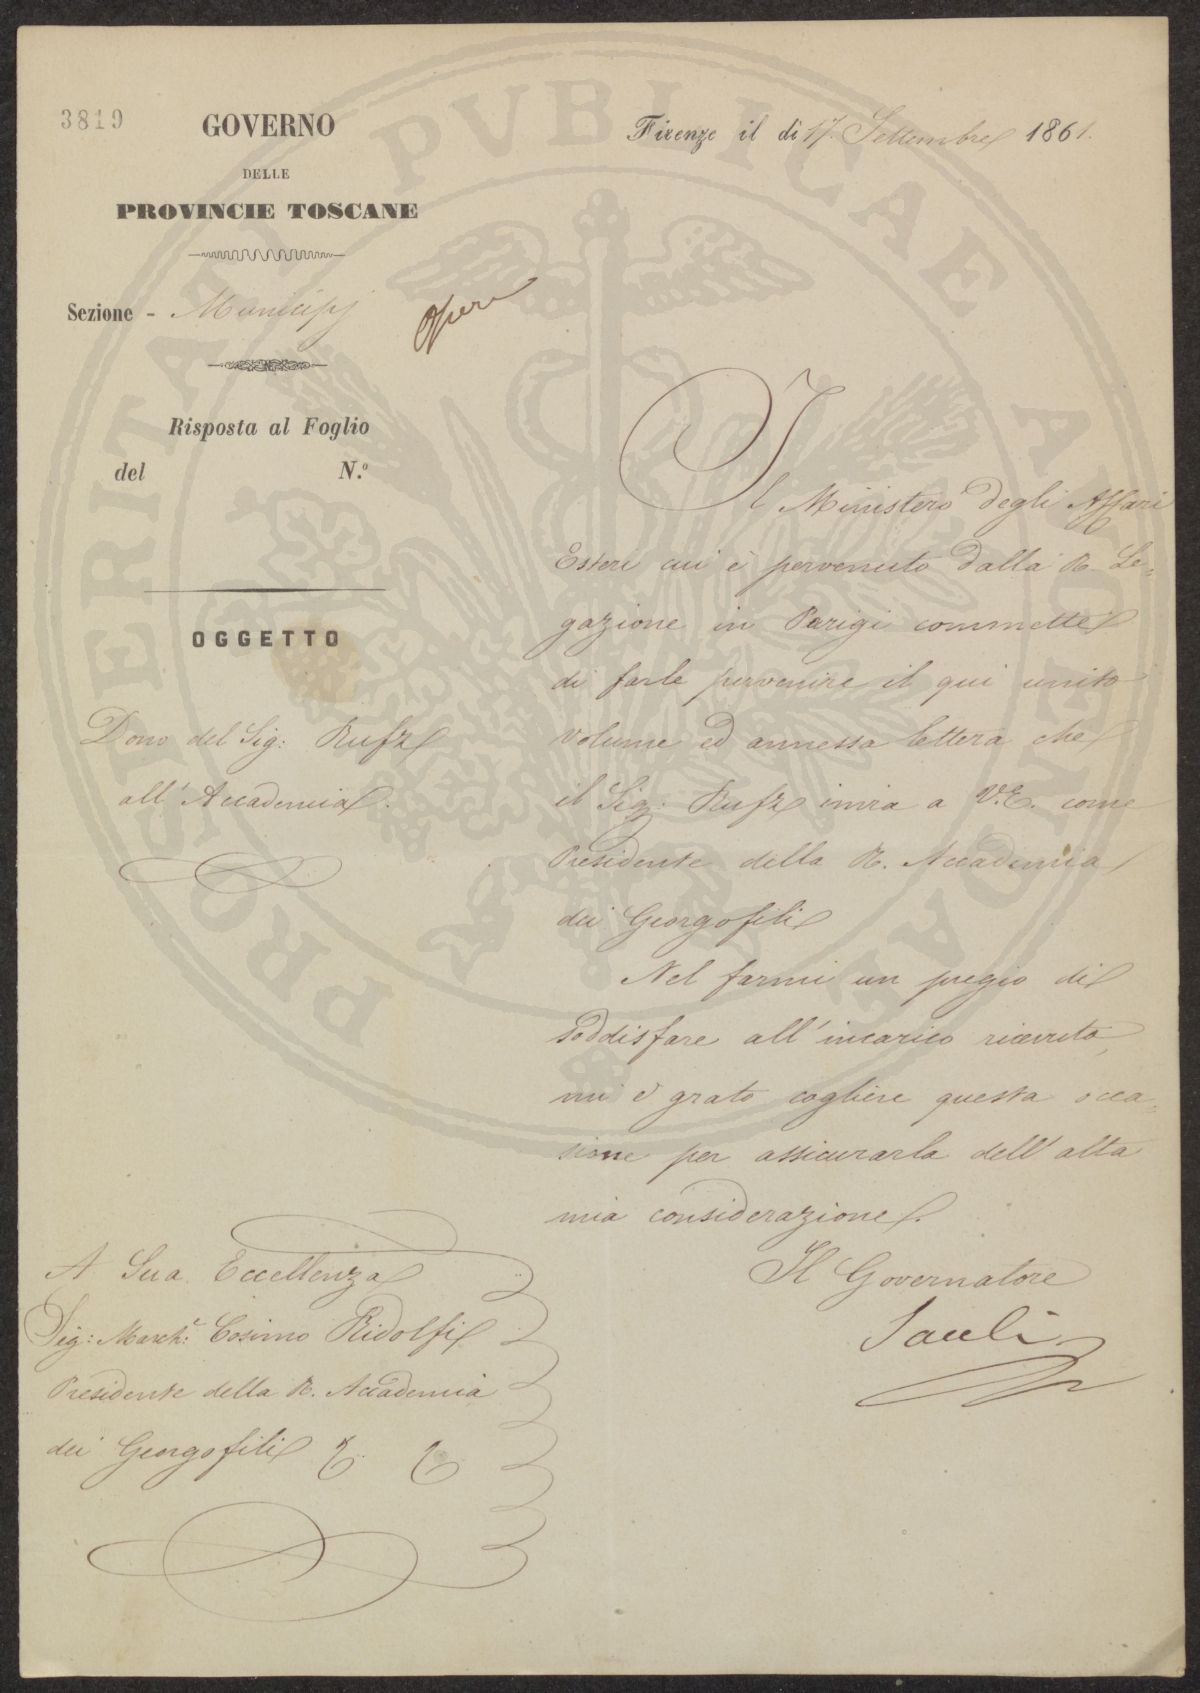 3819
GOVERNO
DELLE
PROVINCIE TOSCANE
Sezione - Municipj
Opere
Risposta al Foglio
del N.º
OGGETTO
Dono del Sig: Rufz
all'Accademia.
Firenze il dì 17. Settembre 1861.
Il Ministero degli Affari
Esteri cui è pervenuto dalla R. Le-
gazione in Parigi commette
di farle pervenire il qui unito
volume ed annessa lettera che
il Sig: Rufz invia a V.E. come
Presidente della R. Accademia
dei Georgofili
Nel farmi un pregio di
soddisfare all'incarico ricevuto,
mi è grato cogliere questa occa-
sione per assicurarla dell'alta
mia considerazione.
Il Governatore
Sauli
A Sua Eccellenza
Sig: March: Cosimo Ridolfi
Presidente della R. Accademia
dei Georgofili
PROSPERITATI PVBLICAE AVGENDAE